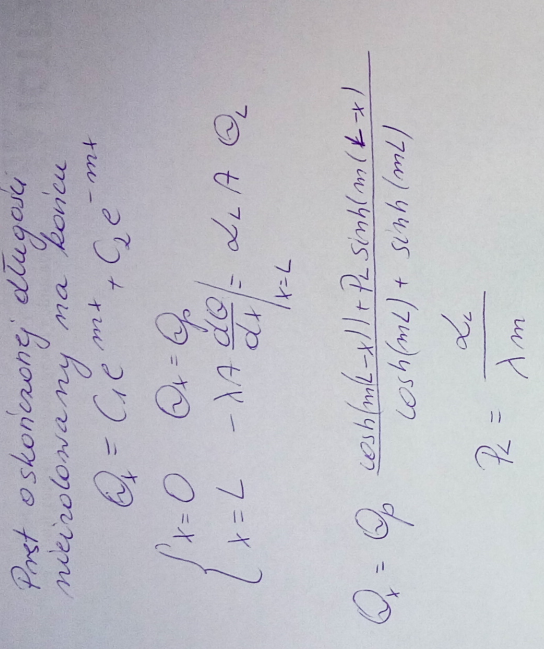 Pręt o skończonej długości
nieizolowany na końcu
Θₓ = C₁e^mx + C₂e^-mx
{ x = 0 Θₓ = Θₚ
x = L -λA dΘ/dx |ₓ₌L = α_L A Θ_L
Θₓ = Θₚ (cosh(m(L-x)) + P_L sinh(m(L-x)) / (cosh(mL) + sinh(mL))
P_L = α_L / λm